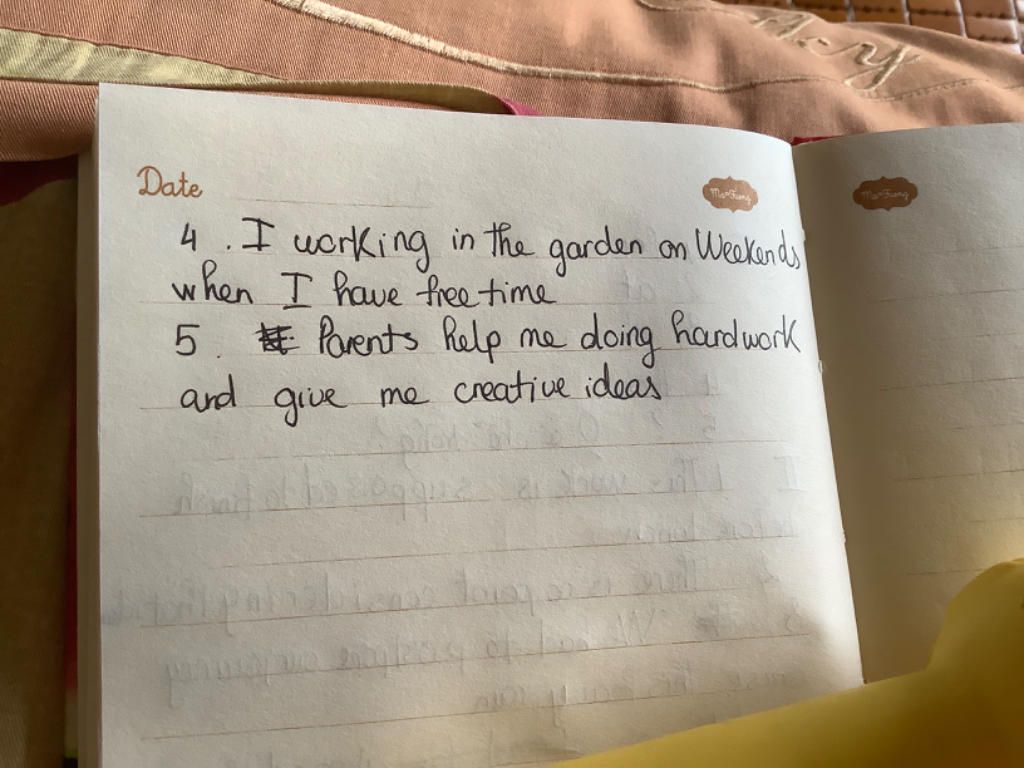 Date
4. I working in the garden on Weekends
when I have free time
5. Parents help me doing hardwork
and give me creative ideas